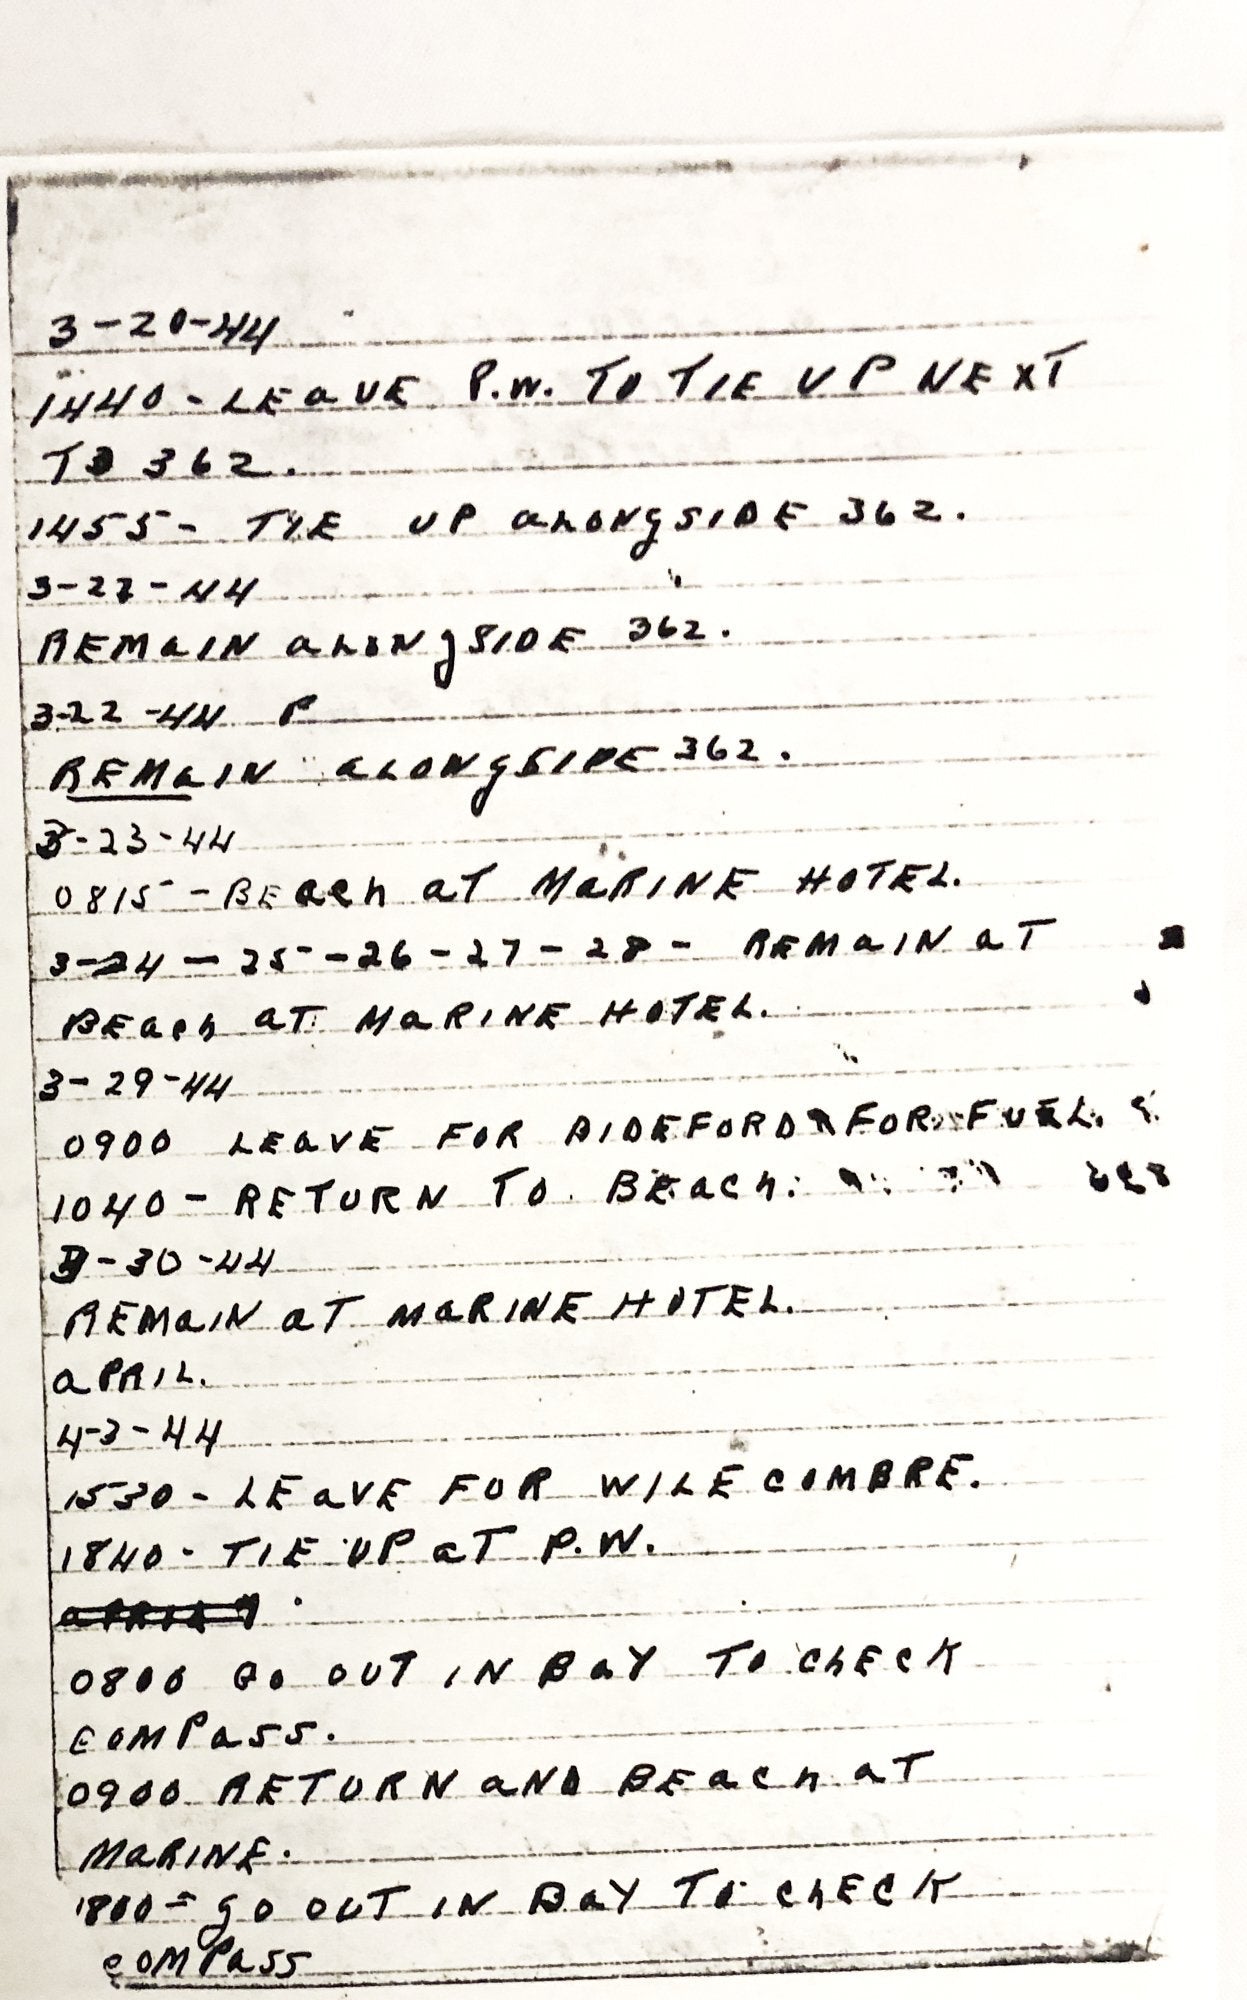 3-20-44
1440-LEaVE P.W. TO TIE UP NEXT
TO 362.
1455- TIE UP aLONgSIDE 362.
3-22-44
REMaIN aLONgSIDE 362.
3-22-44 P
REMaIN aLONgSIDE 362.
3-23-44
0815-BEach aT MaRINE HOTEL.
3-24-25-26-27-28- REMaIN aT
BEach aT MaRINE HOTEL.
3-29-44
0900 LEaVE FOR BIDEFORD FOR FUEL.
1040- RETURN TO BEach.
3-30-44
REMaIN aT MaRINE HOTEL.
aPRIL.
4-3-44
1530- LEaVE FOR WILECOMBRE.
1840- TIE UP aT P.W.
0800 GO OUT IN BaY TO chEcK
cOMPaSS.
0900 RETURN aND BEach aT
MaRINE.
1800- gO OUT IN BaY TO chEcK
cOMPaSS